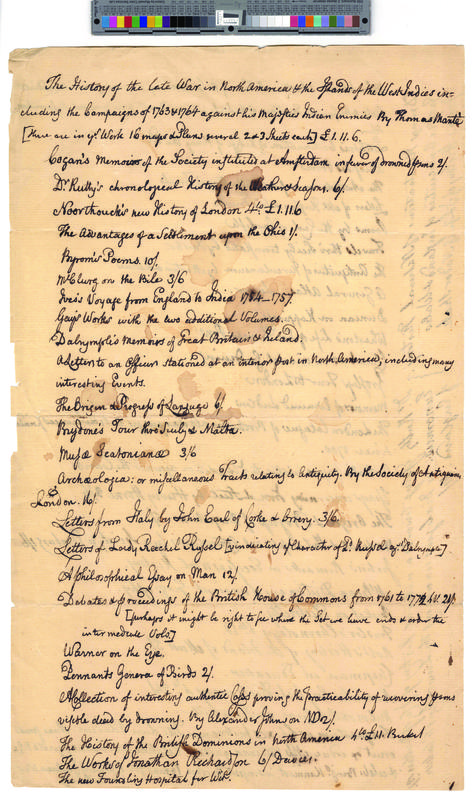 The History of the late War in North America & the Islands of the West Indies in-
cluding the Campaigns of 1763 & 1764 against his Majesties Indian Enemies By Thomas Mante
[There are in yͤ Work 16 maps & Plans several 2 & 3 Sheets each] £1.11.6.
Cogan's Memoirs of the Society instituted at Amsterdam in favor of drowned psons 2/.
Dr. Rutty's chronological History of the Weather & Seasons. 6/.
Noorthouck's new History of London 4to £1.11.6
The Advantages of a Settlement upon the Ohio 1/.
Byrom's Poems. 10/.
McClurg on the Bile 3/6
Ives's Voyage from England to India 1754_1757.
Gay's Works with the two additional Volumes.
Dalrymple's Memoirs of Great Britain & Ireland.
A Letter to an Officer stationed at an interior Post in North America, including many
interesting Events.
The Origin & Progress of Language 6/
Brydone's Tour thro' Sicily & Malta.
Musæ Seatonianæ 3/6
Archæologia: or miscellaneous Tracts relating to Antiquity. By the Society of Antiquaries
London. 16/.
Letters from Italy by John Earl of Corke & Orrery. 3/6.
Letters of Lady Rachel Russel [vindicating yͤ Character of Ld. Russel agt. Dalrymple]
A Philosophical Essay on Man 12/.
Debates & proceedings of the British House of Commons from 1761 to 1772 4 V. 21/.
[perhaps it might be right to see where the Set we have ends & order the
intermediate Vols]
Warner on the Eye.
Pennant's Genera of Birds 2/.
A Collection of interesting authentic Cases proving the practicability of recovering psons
visible dead by drowning. By Alexander Johnson MD 2/.
The History of the British Dominions in North America 4to £1.1.
The Works of Jonathan Richardson 6/ Davies.
The new Foundling Hospital for Wit.